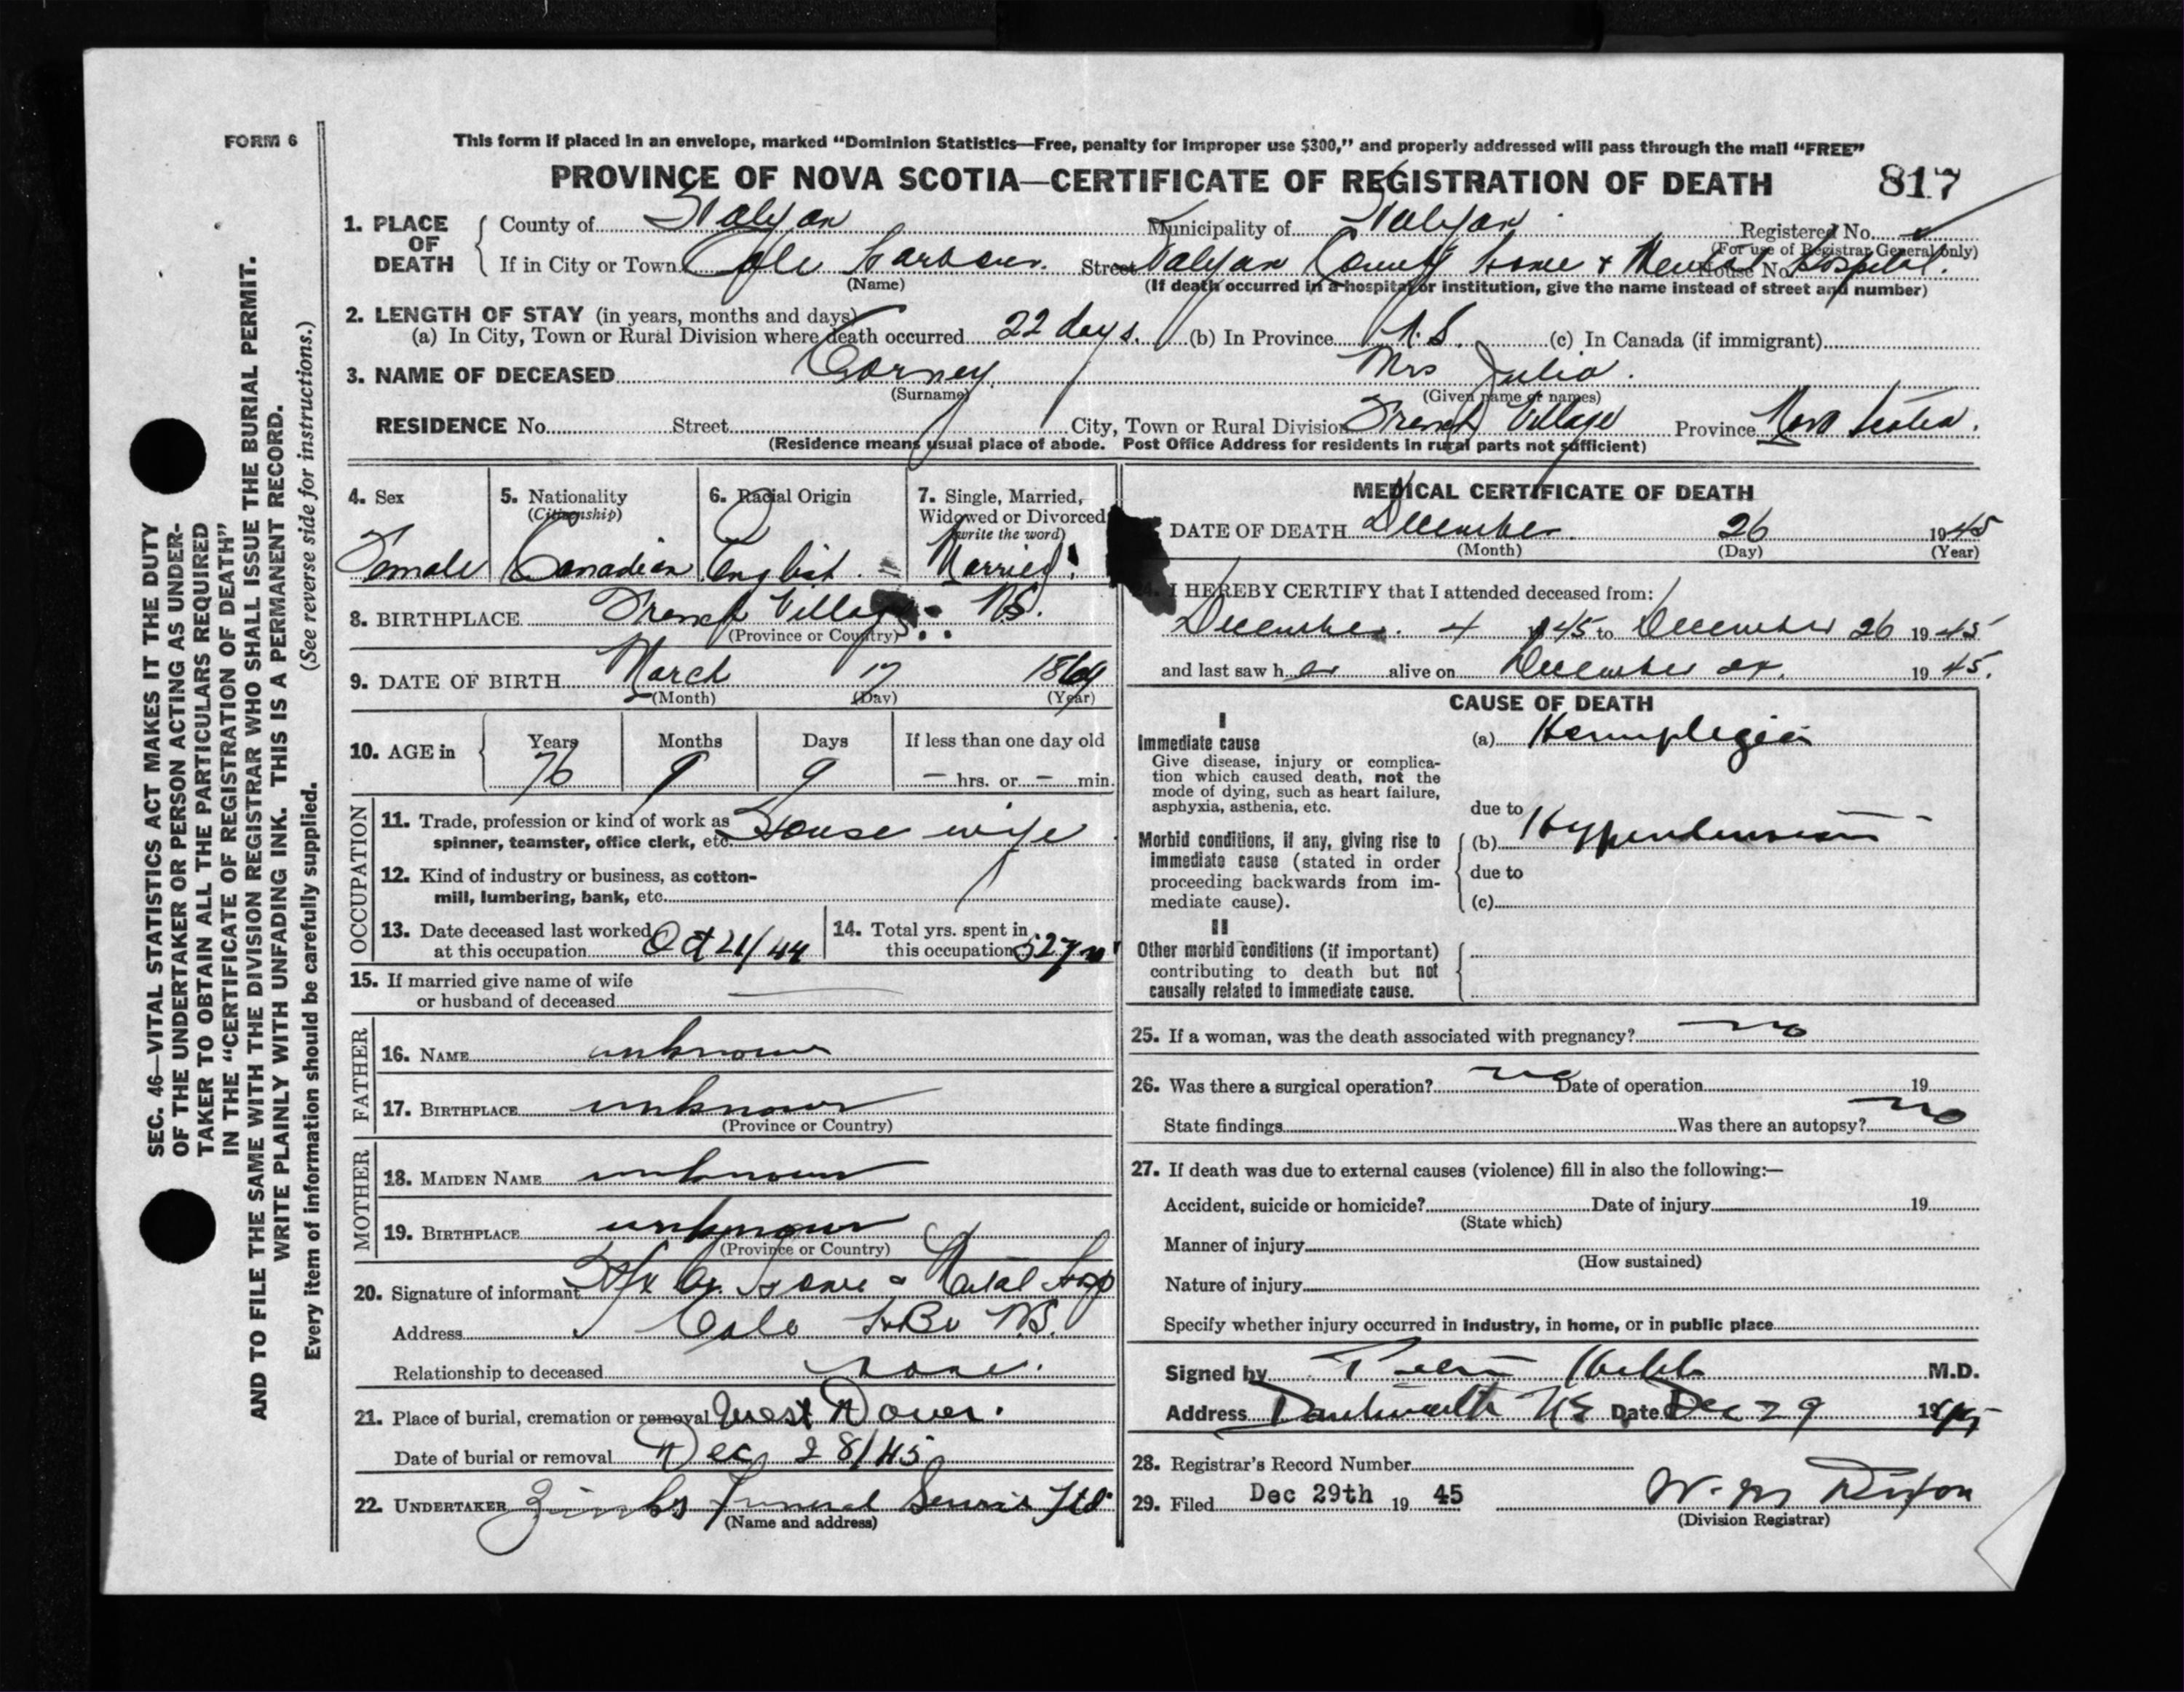 FORM 6
This form if placed in an envelope, marked "Dominion Statistics—Free, penalty for improper use $300," and properly addressed will pass through the mail "FREE"
PROVINCE OF NOVA SCOTIA—CERTIFICATE OF REGISTRATION OF DEATH 817
1. PLACE OF DEATH
County of Halifax Municipality of Halifax Registered No.
(For use of Registrar General only)
If in City or Town Cole Harbour. Street Halifax County Home & Mental Hospital. House No.
(Name) (If death occurred in a hospital or institution, give the name instead of street and number)
2. LENGTH OF STAY (in years, months and days)
(a) In City, Town or Rural Division where death occurred 22 days. (b) In Province N.S. (c) In Canada (if immigrant)
3. NAME OF DECEASED Corney Mrs Julia.
(Surname) (Given name or names)
RESIDENCE No. Street City, Town or Rural Division French Village Province Nova Scotia.
(Residence means usual place of abode. Post Office Address for residents in rural parts not sufficient)
4. Sex
Female
5. Nationality
(Citizenship)
Canadian
6. Racial Origin
English
7. Single, Married,
Widowed or Divorced
(write the word)
Married
8. BIRTHPLACE French Village N.S.
(Province or Country)
9. DATE OF BIRTH March 17 1869
(Month) (Day) (Year)
10. AGE in
Years Months Days If less than one day old
76 9 9 — hrs. or — min.
OCCUPATION
11. Trade, profession or kind of work as
spinner, teamster, office clerk, etc. House wife
12. Kind of industry or business, as cotton-
mill, lumbering, bank, etc.
13. Date deceased last worked
at this occupation Oct 21/44
14. Total yrs. spent in
this occupation 52 yrs
15. If married give name of wife
or husband of deceased
FATHER
16. NAME unknown
17. BIRTHPLACE unknown
(Province or Country)
MOTHER
18. MAIDEN NAME unknown
19. BIRTHPLACE unknown
(Province or Country)
20. Signature of informant Hfx Co. Home & Mental Hosp
Address Cole Hbr N.S.
Relationship to deceased none.
21. Place of burial, cremation or removal West Dover.
Date of burial or removal Dec 28/45
22. UNDERTAKER Funeral Service Ltd.
(Name and address)
MEDICAL CERTIFICATE OF DEATH
DATE OF DEATH December 26 1945
(Month) (Day) (Year)
24. I HEREBY CERTIFY that I attended deceased from:
December 4 1945 to December 26 1945
and last saw her alive on December 24. 1945.
CAUSE OF DEATH
I
Immediate cause
Give disease, injury or complica-
tion which caused death, not the
mode of dying, such as heart failure,
asphyxia, asthenia, etc.
(a) Hemiplegia
due to
Morbid conditions, if any, giving rise to
immediate cause (stated in order
proceeding backwards from im-
mediate cause).
(b) Hypertension
due to
(c)
II
Other morbid conditions (if important)
contributing to death but not
causally related to immediate cause.
25. If a woman, was the death associated with pregnancy? no
26. Was there a surgical operation? no Date of operation 19
State findings Was there an autopsy? no
27. If death was due to external causes (violence) fill in also the following:—
Accident, suicide or homicide? Date of injury 19
(State which)
Manner of injury
(How sustained)
Nature of injury
Specify whether injury occurred in industry, in home, or in public place
Signed by M.D.
Address Dartmouth NS Date Dec 29 1945
28. Registrar's Record Number
29. Filed Dec 29th 19 45 W. M Dixon
(Division Registrar)
SEC. 46—VITAL STATISTICS ACT MAKES IT THE DUTY
OF THE UNDERTAKER OR PERSON ACTING AS UNDER-
TAKER TO OBTAIN ALL THE PARTICULARS REQUIRED
IN THE "CERTIFICATE OF REGISTRATION OF DEATH"
AND TO FILE THE SAME WITH THE DIVISION REGISTRAR WHO SHALL ISSUE THE BURIAL PERMIT.
WRITE PLAINLY WITH UNFADING INK. THIS IS A PERMANENT RECORD.
Every item of information should be carefully supplied. (See reverse side for instructions.)